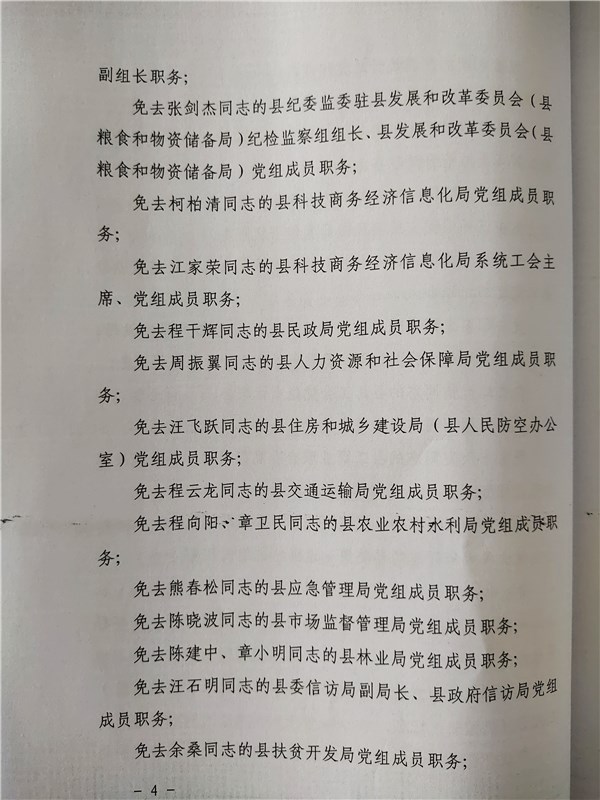 副组长职务;
免去张剑杰同志的县纪委监委驻县发展和改革委员会(县
粮食和物资储备局)纪检监察组组长、县发展和改革委员会(县
粮食和物资储备局)党组成员职务;
免去柯柏清同志的县科技商务经济信息化局党组成员职
务;
免去江家荣同志的县科技商务经济信息化局系统工会主
席、党组成员职务;
免去程干辉同志的县民政局党组成员职务;
免去周振翼同志的县人力资源和社会保障局党组成员职
务;
免去汪飞跃同志的县住房和城乡建设局(县人民防空办公
室)党组成员职务;
免去程云龙同志的县交通运输局党组成员职务;
免去程向阳、章卫民同志的县农业农村水利局党组成员职
务;
免去熊春松同志的县应急管理局党组成员职务;
免去陈晓波同志的县市场监督管理局党组成员职务;
免去陈建中、章小明同志的县林业局党组成员职务;
免去汪石明同志的县委信访局副局长、县政府信访局党组
成员职务;
免去余桑同志的县扶贫开发局党组成员职务;
- 4 -